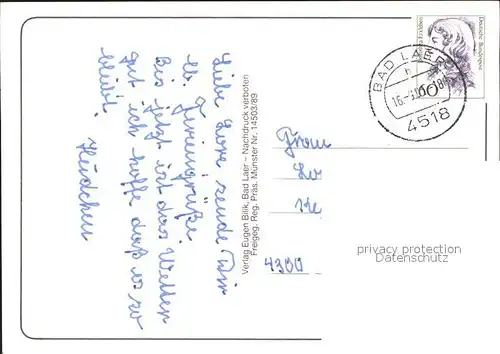 Liebe Lore sende Dir
lb. Feriengrüße.
Bis jetzt ist das Wetter
gut ich hoffe daß es so
bleibt.
Verlag Eugen Bilik, Bad Laer – Nachdruck verboten
Freigeg. Reg. Präs. Münster Nr. 14503/89
Deutsche Bundespost
BAD LAER
4518
Frau
Lo
4300
privacy protection
Datenschutz